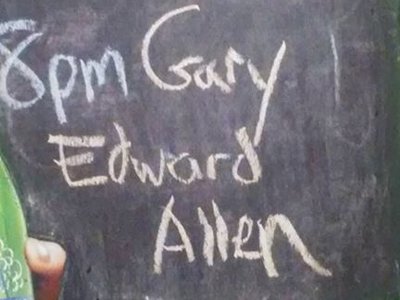 8pm Gary
Edward
Allen